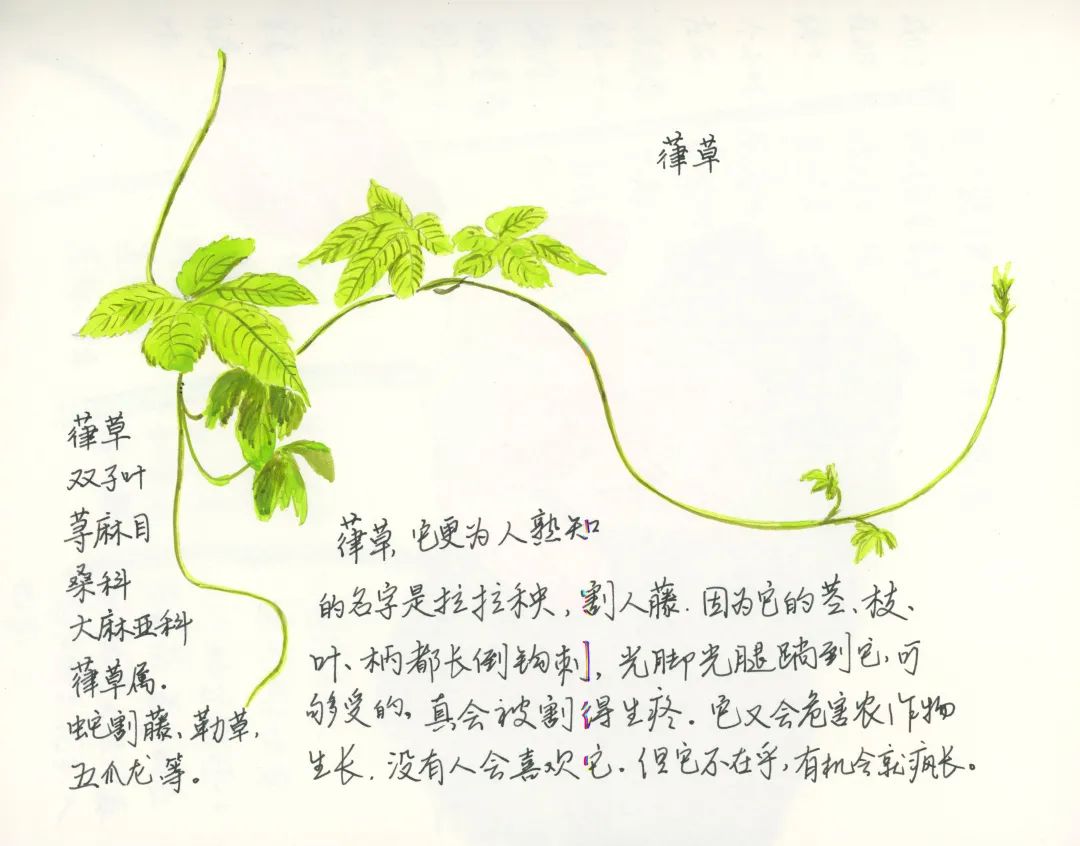 葎草
葎草
双子叶
荨麻目
桑科
大麻亚科
葎草属.
蛇割藤、勒草,
五爪龙等。
葎草,它更为人熟知
的名字是拉拉秧,割人藤.因为它的茎、枝、
叶、柄都长倒钩刺,光脚光腿蹚到它,可
够受的。真会被割得生疼.它又会危害农作物
生长.没有人会喜欢它.但它不在乎,有机会就疯长。